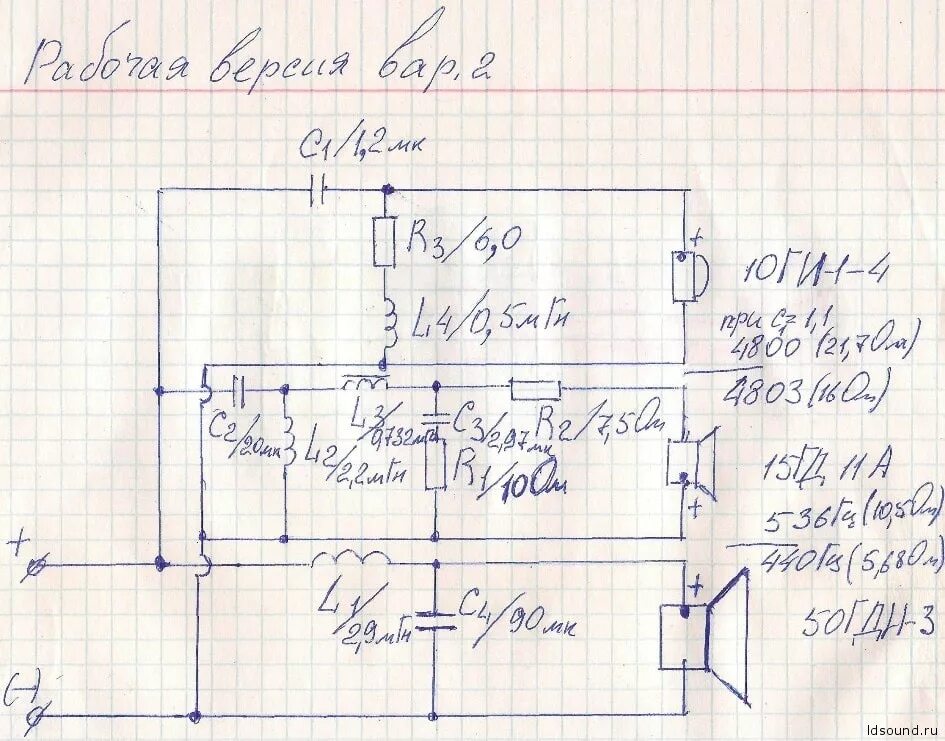 Рабочая версия вар. 2
C1/1,2мк
R3/6,0
L4/0,5мГн
10ГИ-1-4
при C=1,1
4800 (21,7Ом)
4803 (16Ом)
C2/20мк
L2/2,2мГн
L3/0,732мГн
C3/2,97мк
R1/10Ом
R2/7,5Ом
15ГД 11А
536Гц (10,5Ом)
440Гц (5,68Ом)
+
+
+
+
L1/2,9мГн
C4/90мк
50ГДН-3
(-)
ldsound.ru